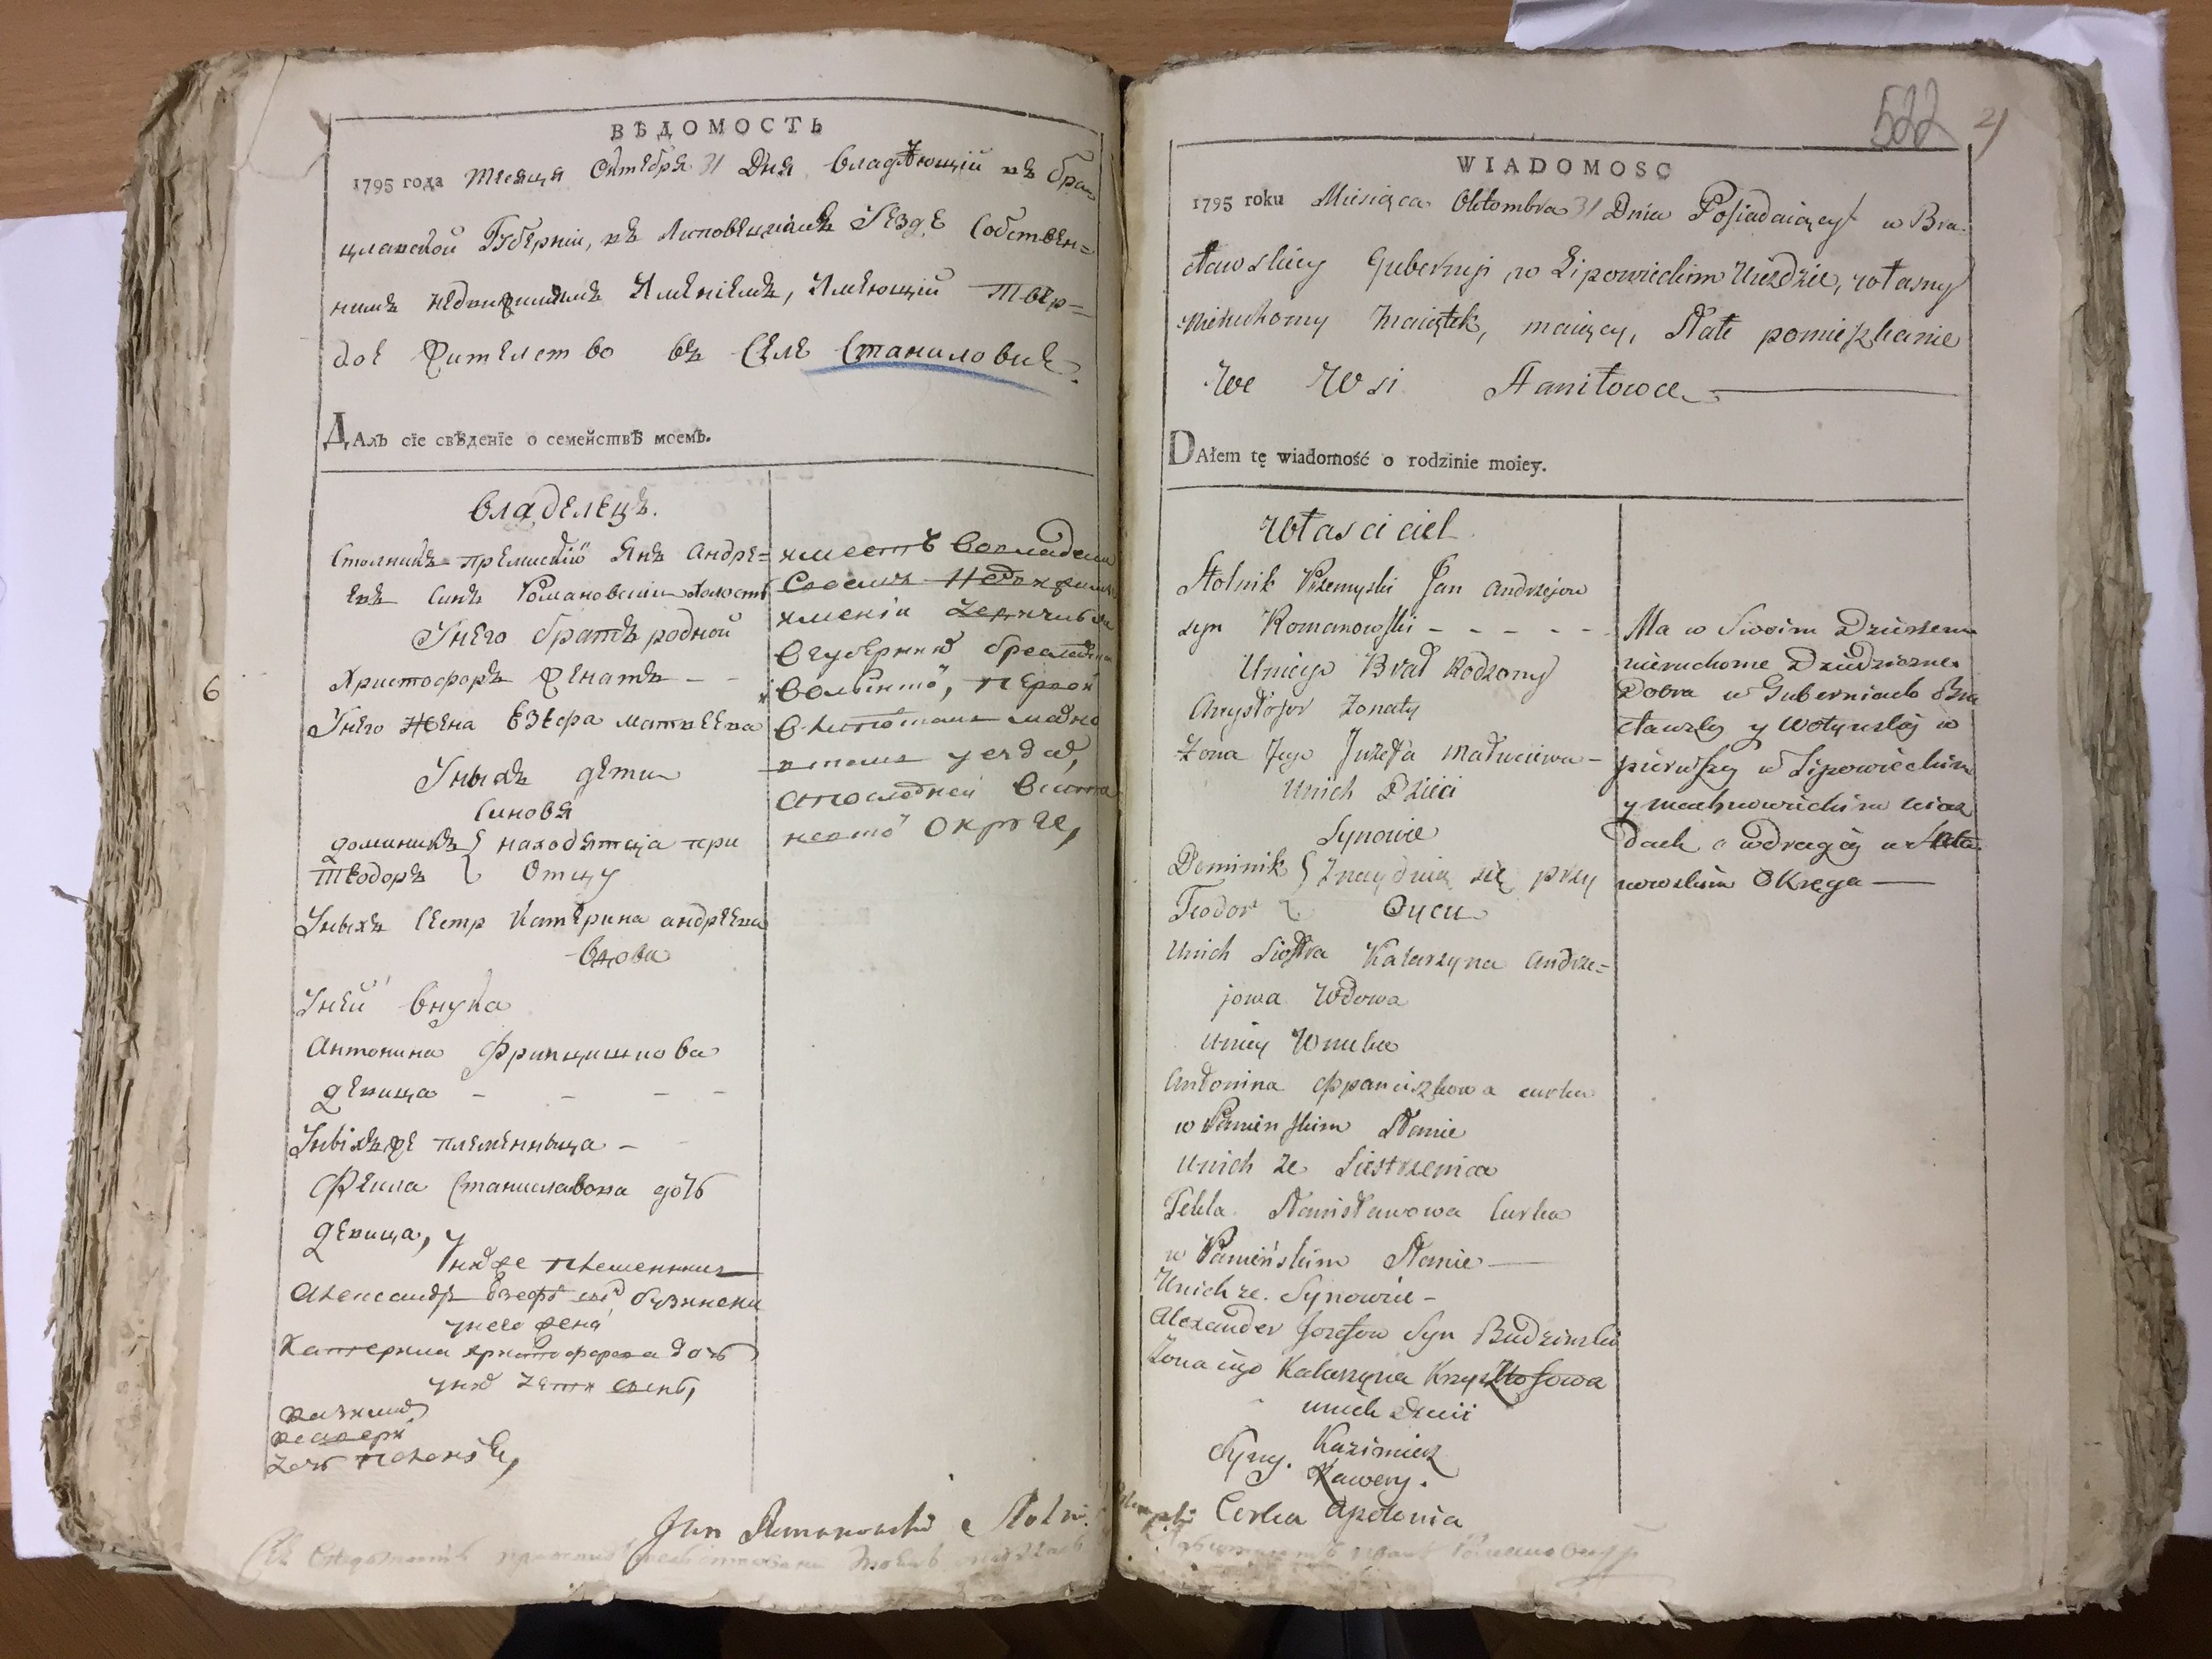 ВѢДОМОСТЬ
1795 года Месяца Октября 31 Дня Владѣющій въ Бра-
цлавской Губерніи, въ Липовецкомъ Уездѣ Собствен=
нимъ недвижимимъ Имениемъ, Имеющій твер=
дое жителство въ Селе Станиловце
Далъ сіе свѣденіе о семействѣ моемъ.
Владелецъ.
Столникъ премиский Янъ Андре=
евъ Синъ Романовский холостъ
Унего братъ родной
Христофоръ женатъ - -
Унего жена Езефа матвеева
Унихъ дети
Синовя
доминикъ { находятца при
теодоръ { Отцу
Унихъ Сестр Катерина андреева
вдова
Уней внука
Антонина Францишкова
девица - - - -
Унихъже племенница -
Фекла Станиславова дочь
девица,
Унихже племенник
Александр Езефов син Будзински
унего жена
Катерина христофорова дочь
уних дети сини,
казимир
ксавери
дочь
имеетъ во владении
своемъ Недвижими
имении
в губернии брацлавской
и волинской, первой
в липовецком и махно
вском уезде,
а последней в
округе,
Jan Romanowski Stolni.
522
21
WIADOMOSC
1795 roku Miesiąca Oktombra 31 Dnia Posiadaiący w Bra-
cławskiey Gubernyi, w Lipowieckim Uieździe, własny
Nieruchomy Maiątek, maiący, Stałe pomieszkanie
we Wsi Staniłowce
DAłem tę wiadomość o rodzinie moiey.
Własciciel
Stolnik Przemyski Jan Andrzejow
syn Romanowski - - - - -
Uniego Brat Rodzony
Chrysztofor Zonaty
Zona Jego Juzefa Matwieiewa -
Unich Dzieci
Synowie
Dominik { Znayduią się przy
Teodor { Oycu
Unich Siostra Katarzyna Andrze=
jowa Wdowa
Uniey Wnuka
Antonina Franciszkowa curka
w Panienskim Stanie
Unich ze Siestrzenica
Tekla Stanisławowa Curka
w Panieńskim Stanie
Unich ze Synowie -
Alexander Jozefow Syn Budzinski
Zona iego Katarzyna Krzysztofowa
unich Dzieci
Syny. Kazimierz
Xawery.
Corka Apolonia
Ma w Swoim
nieruchome Dziedziczne
Dobra w Guberniach Bra
cławskey y Wołynskiey w
pierwszey w Lipowieckim
y machnowieckim uiaz
dach a w drugiey w
nowskim Okręgu